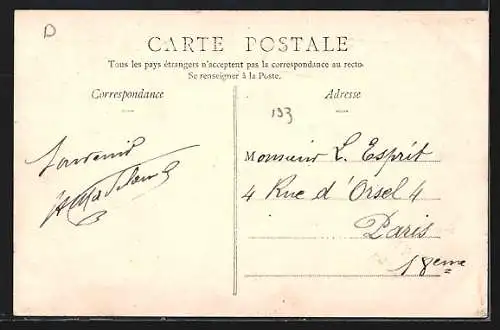 D
CARTE POSTALE
Tous les pays étrangers n'acceptent pas la correspondance au recto-
Se renseigner à la Poste.
Correspondance
Adresse
193
Souvenir
Monsieur L. Esprit
4 Rue d'Orsel 4
Paris
18eme